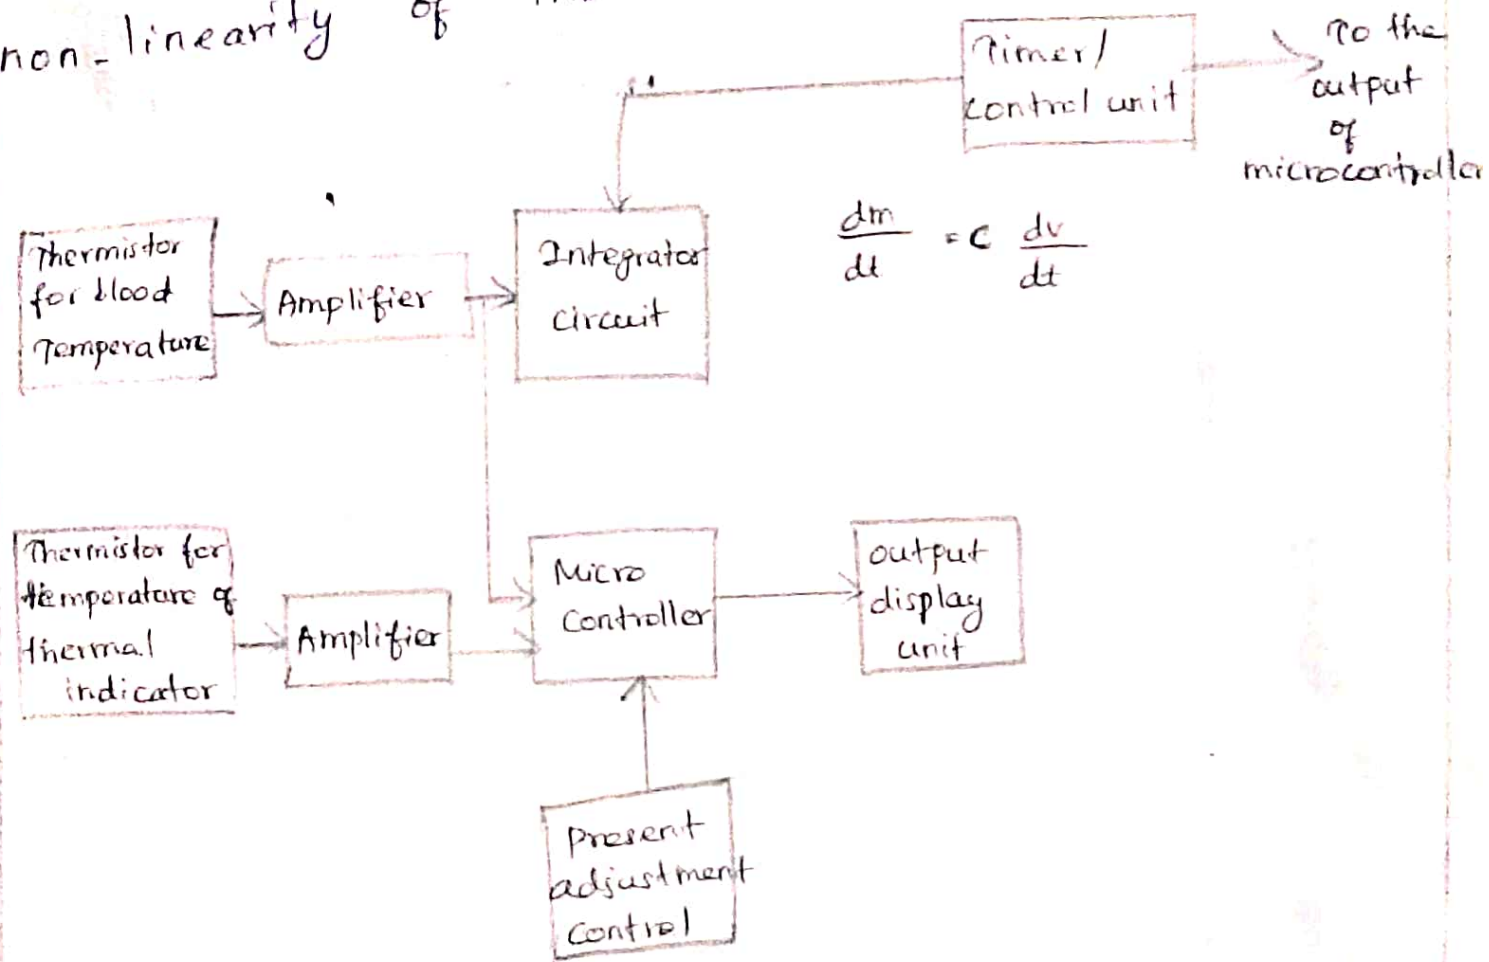 non-linearity of
Timer/
control unit
To the
output
of
microcontroller
Thermistor
for blood
Temperature
Amplifier
Integrator
circuit
dm/dt = c dv/dt
Thermistor for
temperature of
thermal
indicator
Amplifier
Micro
Controller
output
display
unit
Present
adjustment
control